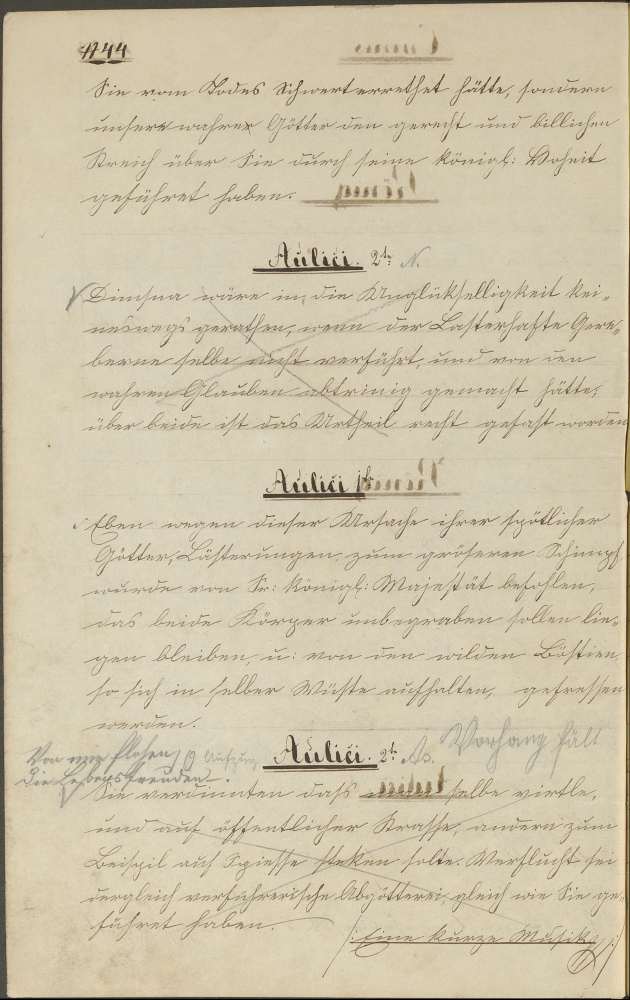 1744
Sie vom Todes Schwert errettet hätte, sondern
unsere wahren Götter den gerecht und billichen
Streich über Sie durch seine Königl: Hoheit
geführet haben.
Aulici. 2te N.
Dimsna wäre in, die Unglükselligkeit kei-
neswegs gerathen, wenn der Lasterhafte Gere-
berne selbe nicht verführt, und von den
wahren Glauben abtrinig gemacht hätte,
über beide ist das Urtheil recht gefast worden
Aulici 1te
Eben wegen dieser Ursache ihrer spötlicher
Götter, Lästerungen zum gröseren Schimpf
wurde von Sr: Königl: Majestät befohlen,
das beide Körper unbegraben sollen lie-
gen bleiben, u: von den wilden Böstien,
so sich in selber Wüste aufhalten, gefressen
werden.
Vorhang fält
Von
Aufzug
die Lebensfreuden
Aulici. 2te No.
Sie verdinnten dass selbe virtle,
und auf öffentlicher Strasse, andern zum
Beispil auf Spiesse steken solte. Verflucht sei
dergleich verführerische Abgötterei, gleich wie Sie ge-
führet haben.
/: Eine kurze Musik :/